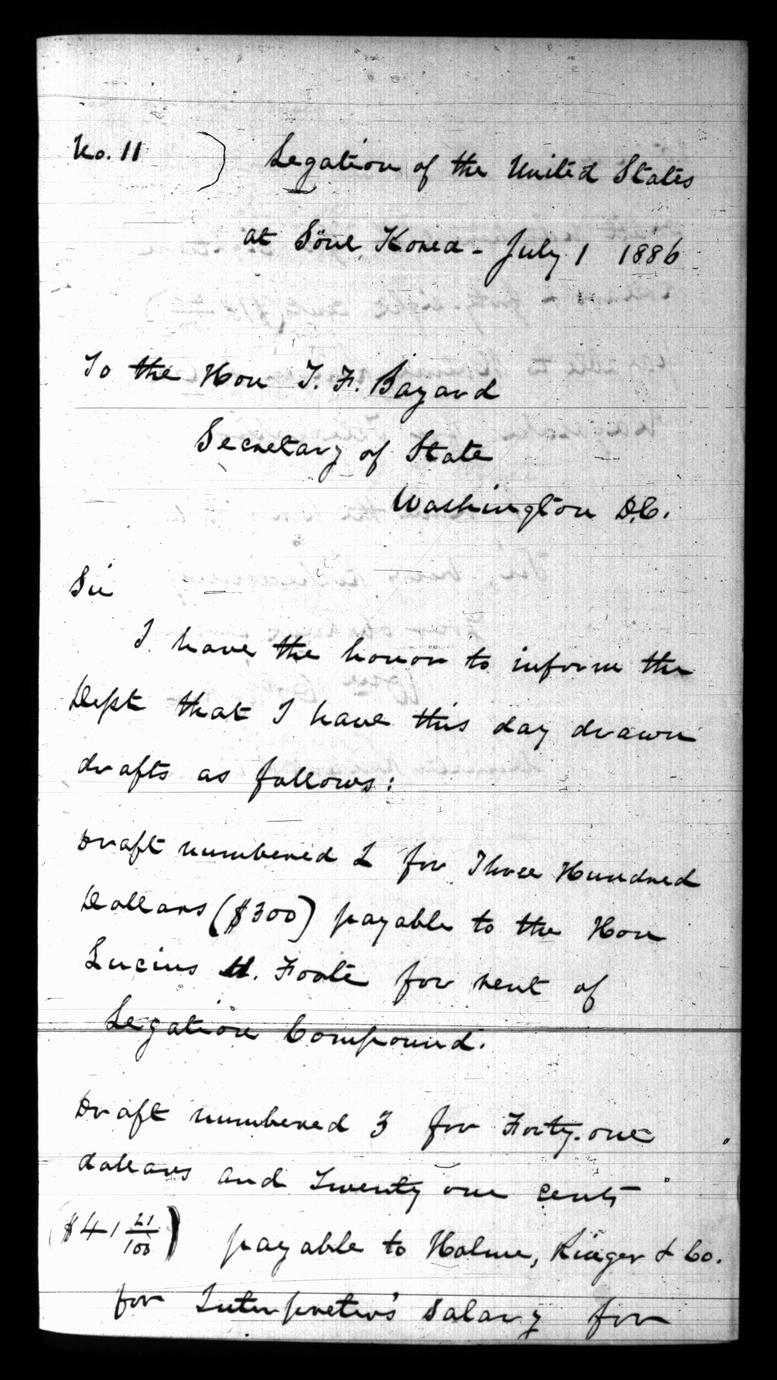 No. 11 ) Legation of the United States
at Söul, Korea - July 1 1886
To the Hon T. F. Bayard
Secretary of State
Washington D.C.
Sir
I have the honor to inform the
Dept that I have this day drawn
drafts as follows:
Draft numbered 2 for Three Hundred
Dollars ($300) payable to the Hon
Lucius H. Foote for rent of
Legation Compound.
Draft numbered 3 for Forty-one
dollars and Twenty one cents
($41 21/100) payable to Holme, Ringer & Co.
for Interpreter's Salary for